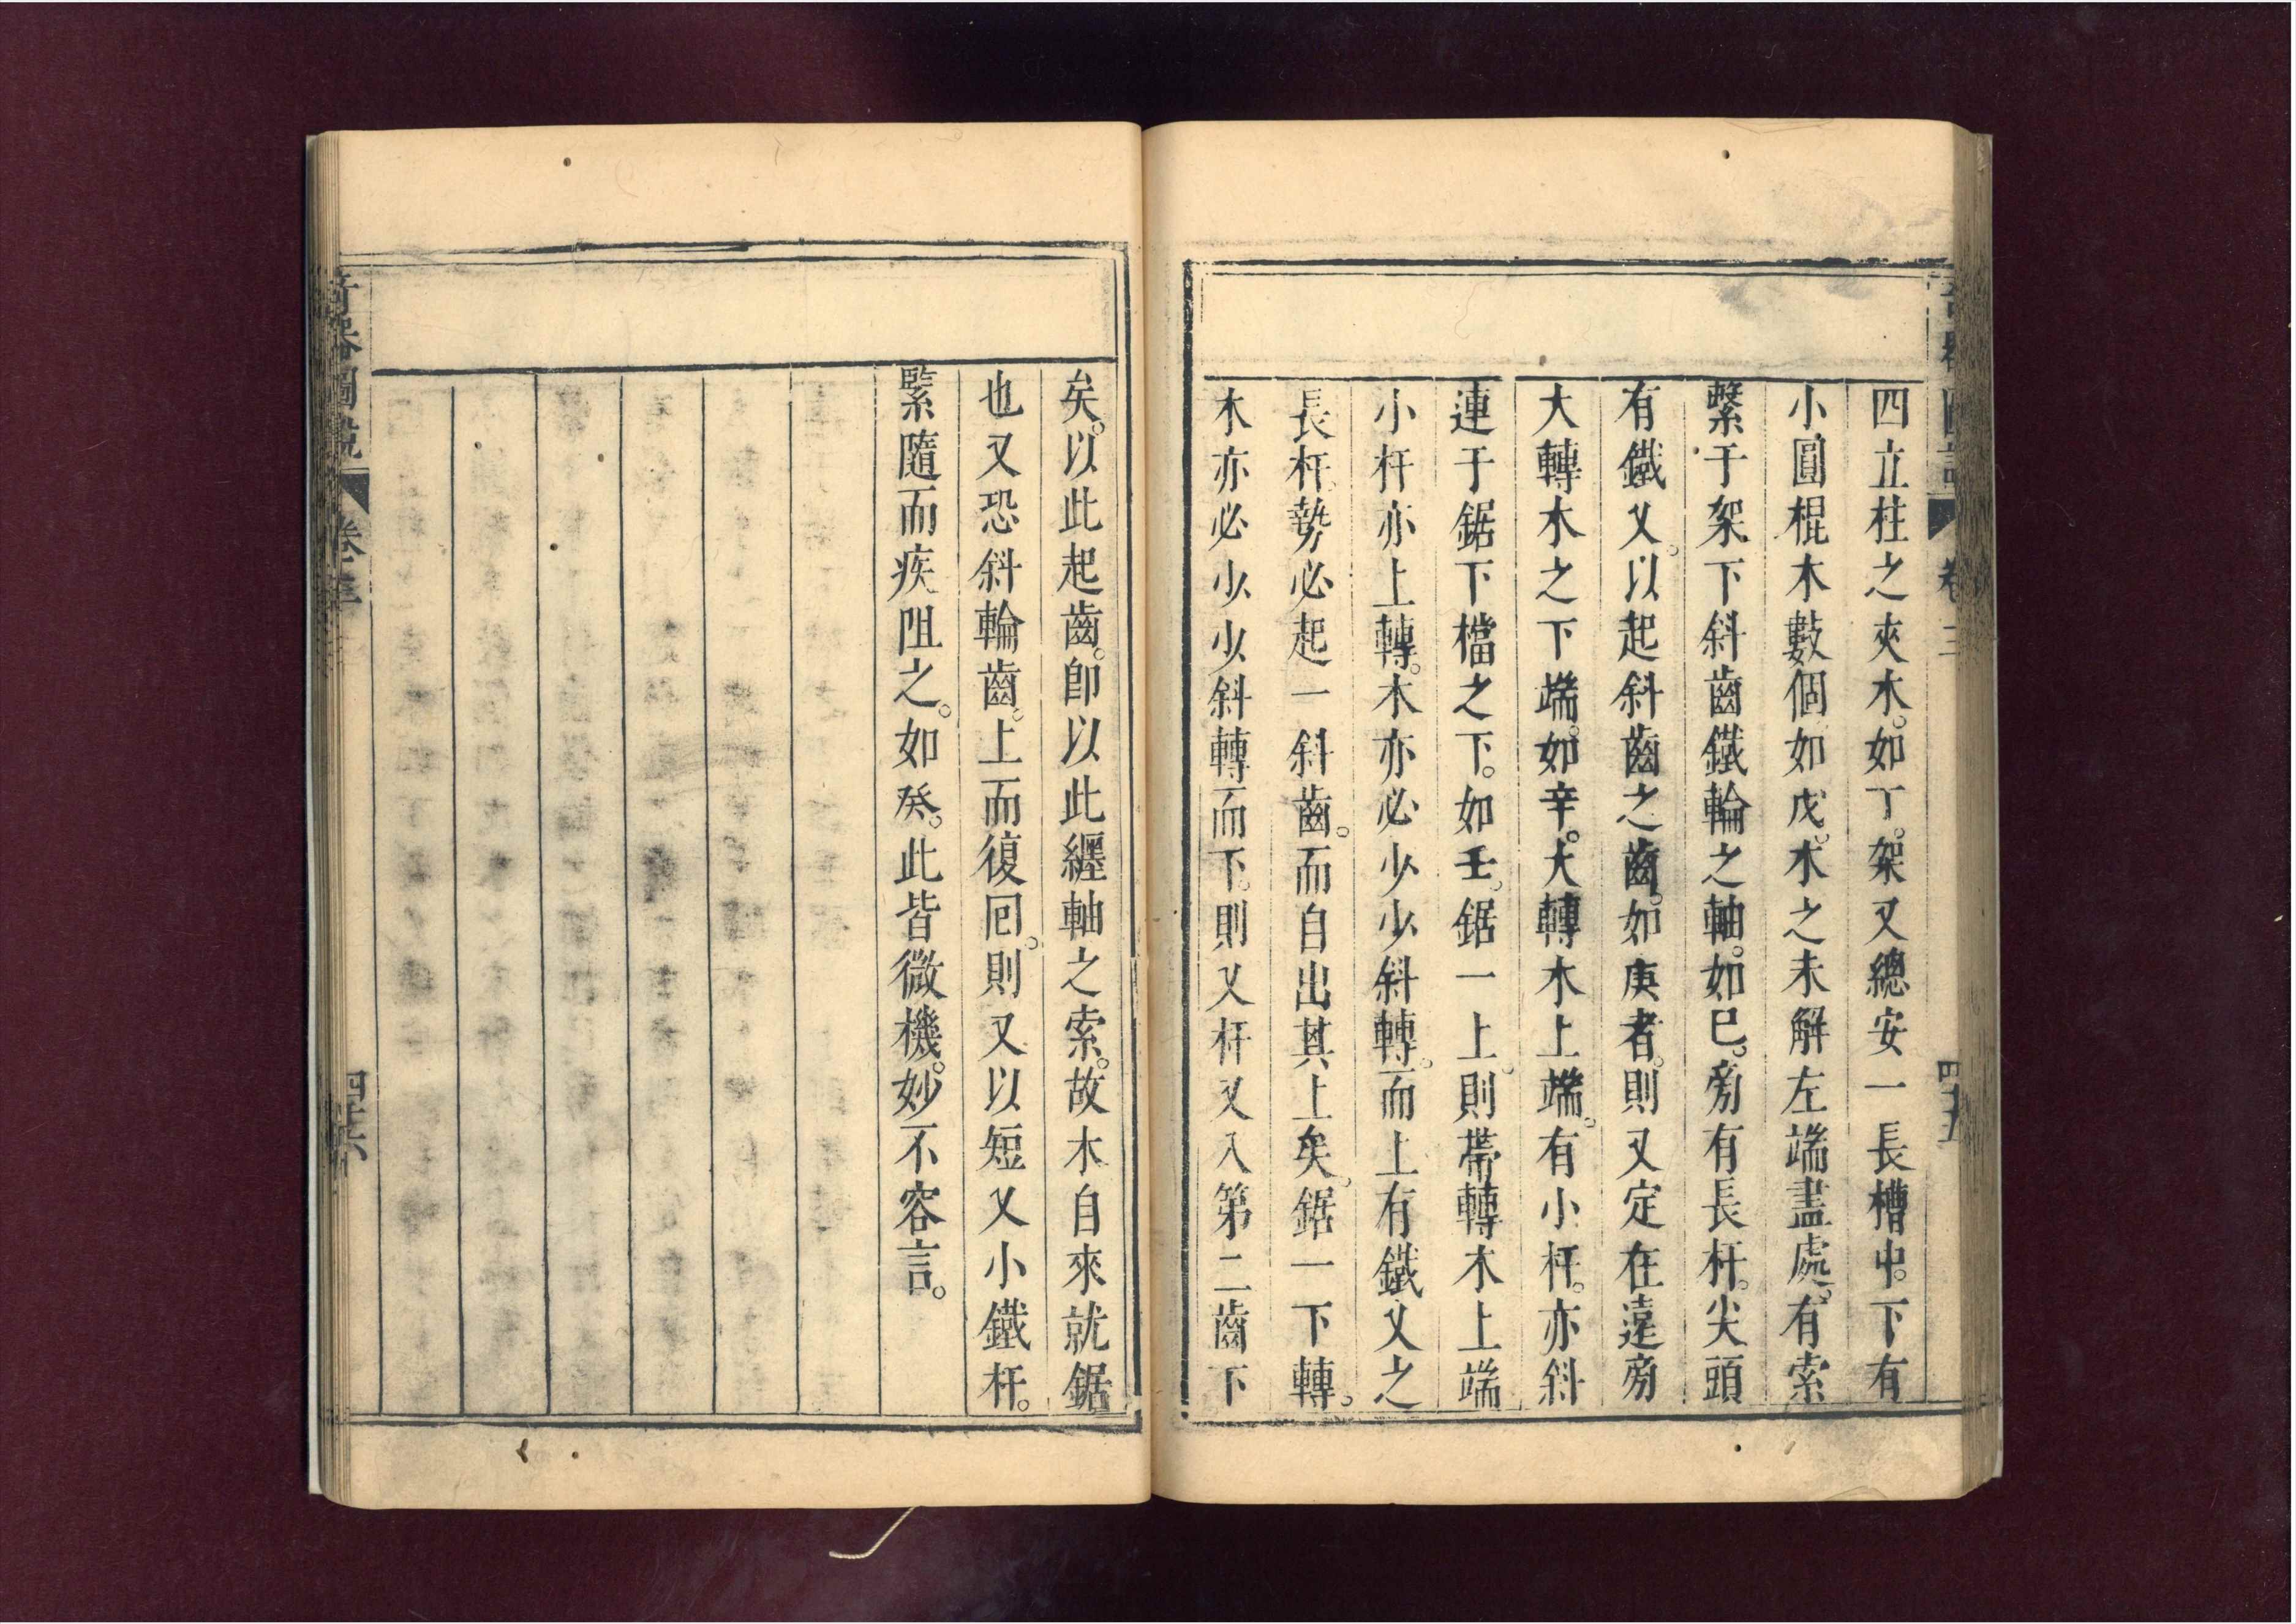 四立柱之夾木。如丁。架又總安一長槽中。下有
小圓棍木數個如戊。木之未解左端盡處。有索
繫于架下斜齒鐵輪之軸。如巳。旁有長杆。尖頭
有鐵叉。以起斜齒之齒。如庚者。則又定在遠旁
大轉木之下端。如辛。大轉木上端。有小杆。亦斜
連于鋸下檔之下。如壬。鋸一上。則帶轉木上端
小杆亦上轉。木亦必少少斜轉。而上有鐵叉之
長杆。勢必起一斜齒。而自出其上矣。鋸一下轉。
木亦必少少斜轉而下。則又杆叉入第二齒下
卷三
四十五
矣。以此起齒。卽以此纏軸之索。故木自來就鋸
也又恐斜輪齒。上而復囘。則又以短叉小鐵杆。
緊隨而疾阻之。如癸。此皆微機。妙不容言。
奇器圖說
卷三
四十六